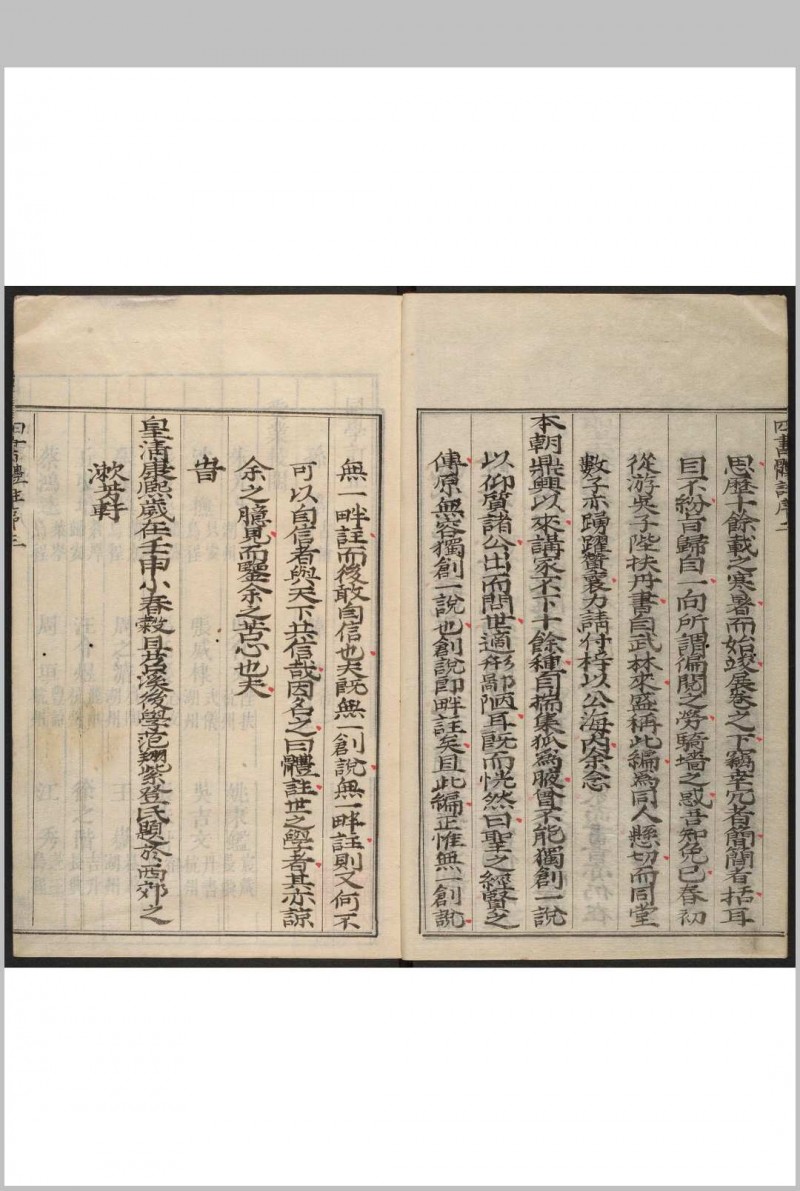 四書體註序 二
思歷十餘載之寒暑而始竣展卷之下竊幸冗者簡簡者括耳
目不紛百歸自一向所謂偏閱之勞騎墻之惑吾知免已春初
從游吳子陛扶丹書自武林來盛稱此編為同人懸切而同堂
數子亦踴躍贊襄力請付梓以公海內余念
本朝鼎興以來講家不下十餘種自揣集狐為腋曾不能獨創一說
以仰質諸公出而問世適形鄙陋耳既而恍然曰聖之經賢之
傳原無容獨創一說也創說即畔註矣且此編正惟無一創說
無一畔註而後敢自信也夫既無一創說無一畔註則又何不
可以自信者與天下共信哉因名之曰體註世之學者其亦諒
余之臆見而鑒余之苦心也夫
旹
皇清康熙歲在壬申小春穀旦苕溪後學范翔紫登氏題於西郊之
漱芳軒
四書體註序 三